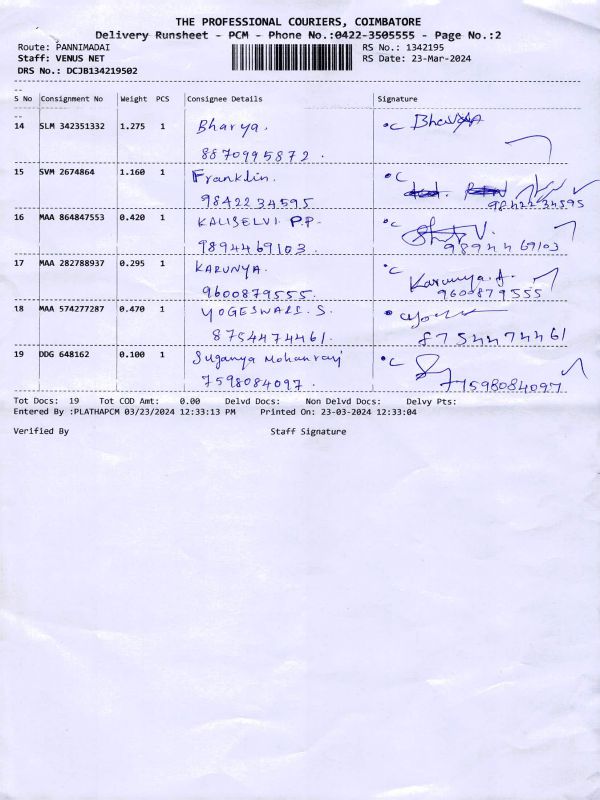 THE PROFESSIONAL COURIERS, COIMBATORE
Delivery Runsheet - PCM - Phone No.:0422-3505555 - Page No.:2
Route: PANNIMADAI RS No.: 1342195
Staff: VENUS NET RS Date: 23-Mar-2024
DRS No.: DCJB134219502
--
S No Consignment No Weight PCS Consignee Details Signature
--
14 SLM 342351332 1.275 1 Bharya. °C Bhavya
8870995872.
15 SVM 2674864 1.160 1 Franklin. °C
9842234595 9842234595
16 MAA 864847553 0.420 1 KALISELVI P.P. °C
9894469103. 9894469103
17 MAA 282788937 0.295 1 KARUNYA. °C Karunya.
9600879555. 9600879555
18 MAA 574277287 0.470 1 YOGESWARI. S.
8754474461. 8754474461
19 DDG 648162 0.100 1 Suganya Mohanraj °C
7598084097. 7598084097
Tot Docs: 19 Tot COD Amt: 0.00 Delvd Docs: Non Delvd Docs: Delvy Pts:
Entered By :PLATHAPCM 03/23/2024 12:33:13 PM Printed On: 23-03-2024 12:33:04
Verified By Staff Signature